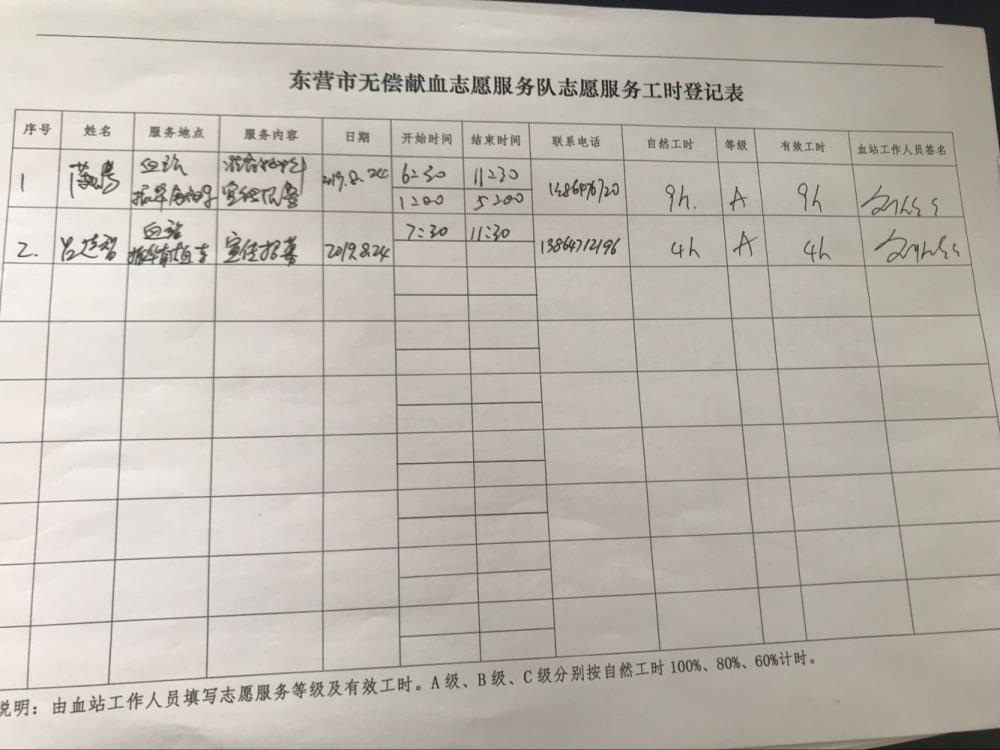 东营市无偿献血志愿服务队志愿服务工时登记表
序号 姓名 服务地点 服务内容 日期 开始时间 结束时间 联系电话 自然工时 等级 有效工时 血站工作人员签名
1 血站 2019.8.24 6:30 11:30 9h. A 9h
1200 5200
2. 吕建智 血站 宣传招募 2019.8.24 7:30 11:30 13864712196 4h A 4h
说明：由血站工作人员填写志愿服务等级及有效工时。A级、B级、C级分别按自然工时100%、80%、60%计时。